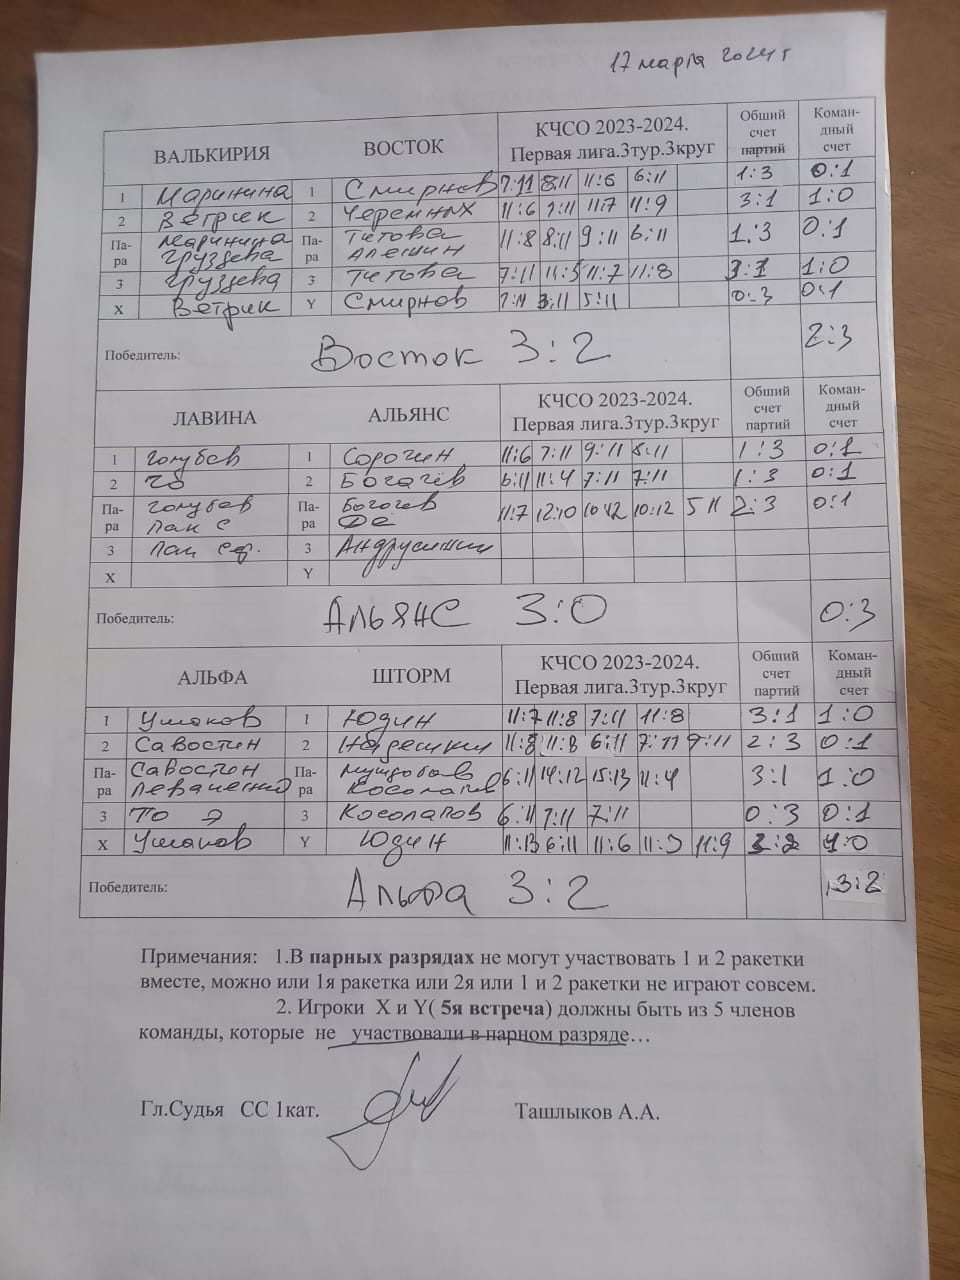 17 марта 2024 г
ВАЛЬКИРИЯ ВОСТОК КЧСО 2023-2024. Первая лига.3тур.3круг Общий счет партий Коман-дный счет
1 Маринина 1 Смирнов 7:11 8:11 11:6 6:11 1:3 0:1
2 Ветрик 2 Черемных 11:6 9:11 11:7 11:9 3:1 1:0
Па-ра Маринина Груздева Па-ра Титова Алешин 11:8 8:11 9:11 6:11 1:3 0:1
3 Груздева 3 Титова 7:11 11:5 11:7 11:8 3:1 1:0
X Ветрик Y Смирнов 7:11 3:11 5:11 0:3 0:1
Победитель: Восток 3:2 2:3
ЛАВИНА АЛЬЯНС КЧСО 2023-2024. Первая лига.3тур.3круг Общий счет партий Коман-дный счет
1 Голубев 1 Сорочин 11:6 7:11 9:11 8:11 1:3 0:1
2 2 Богачёв 6:11 11:4 7:11 7:11 1:3 0:1
Па-ра Голубев Пак С Па-ра Богачев Де 11:7 12:10 10:12 10:12 5 11 2:3 0:1
3 Пак 3 Андрусишин
X Y
Победитель: Альянс 3:0 0:3
АЛЬФА ШТОРМ КЧСО 2023-2024. Первая лига.3тур.3круг Общий счет партий Коман-дный счет
1 Ушаков 1 Юдин 11:7 11:8 7:11 11:8 3:1 1:0
2 Савостин 2 11:8 11:8 6:11 7:11 9:11 2:3 0:1
Па-ра Савостин Па-ра Косолапов 6:11 14:12 15:13 11:4 3:1 1:0
3 То Э 3 Косолапов 6:11 7:11 7:11 0:3 0:1
X Ушаков Y Юдин 11:13 6:11 11:6 11:3 11:9 3:2 1:0
Победитель: Альфа 3:2 3:2
Примечания: 1.В парных разрядах не могут участвовать 1 и 2 ракетки
вместе, можно или 1я ракетка или 2я или 1 и 2 ракетки не играют совсем.
2. Игроки X и Y( 5я встреча) должны быть из 5 членов
команды, которые не участвовали в парном разряде…
Гл.Судья СС 1кат. Ташлыков А.А.